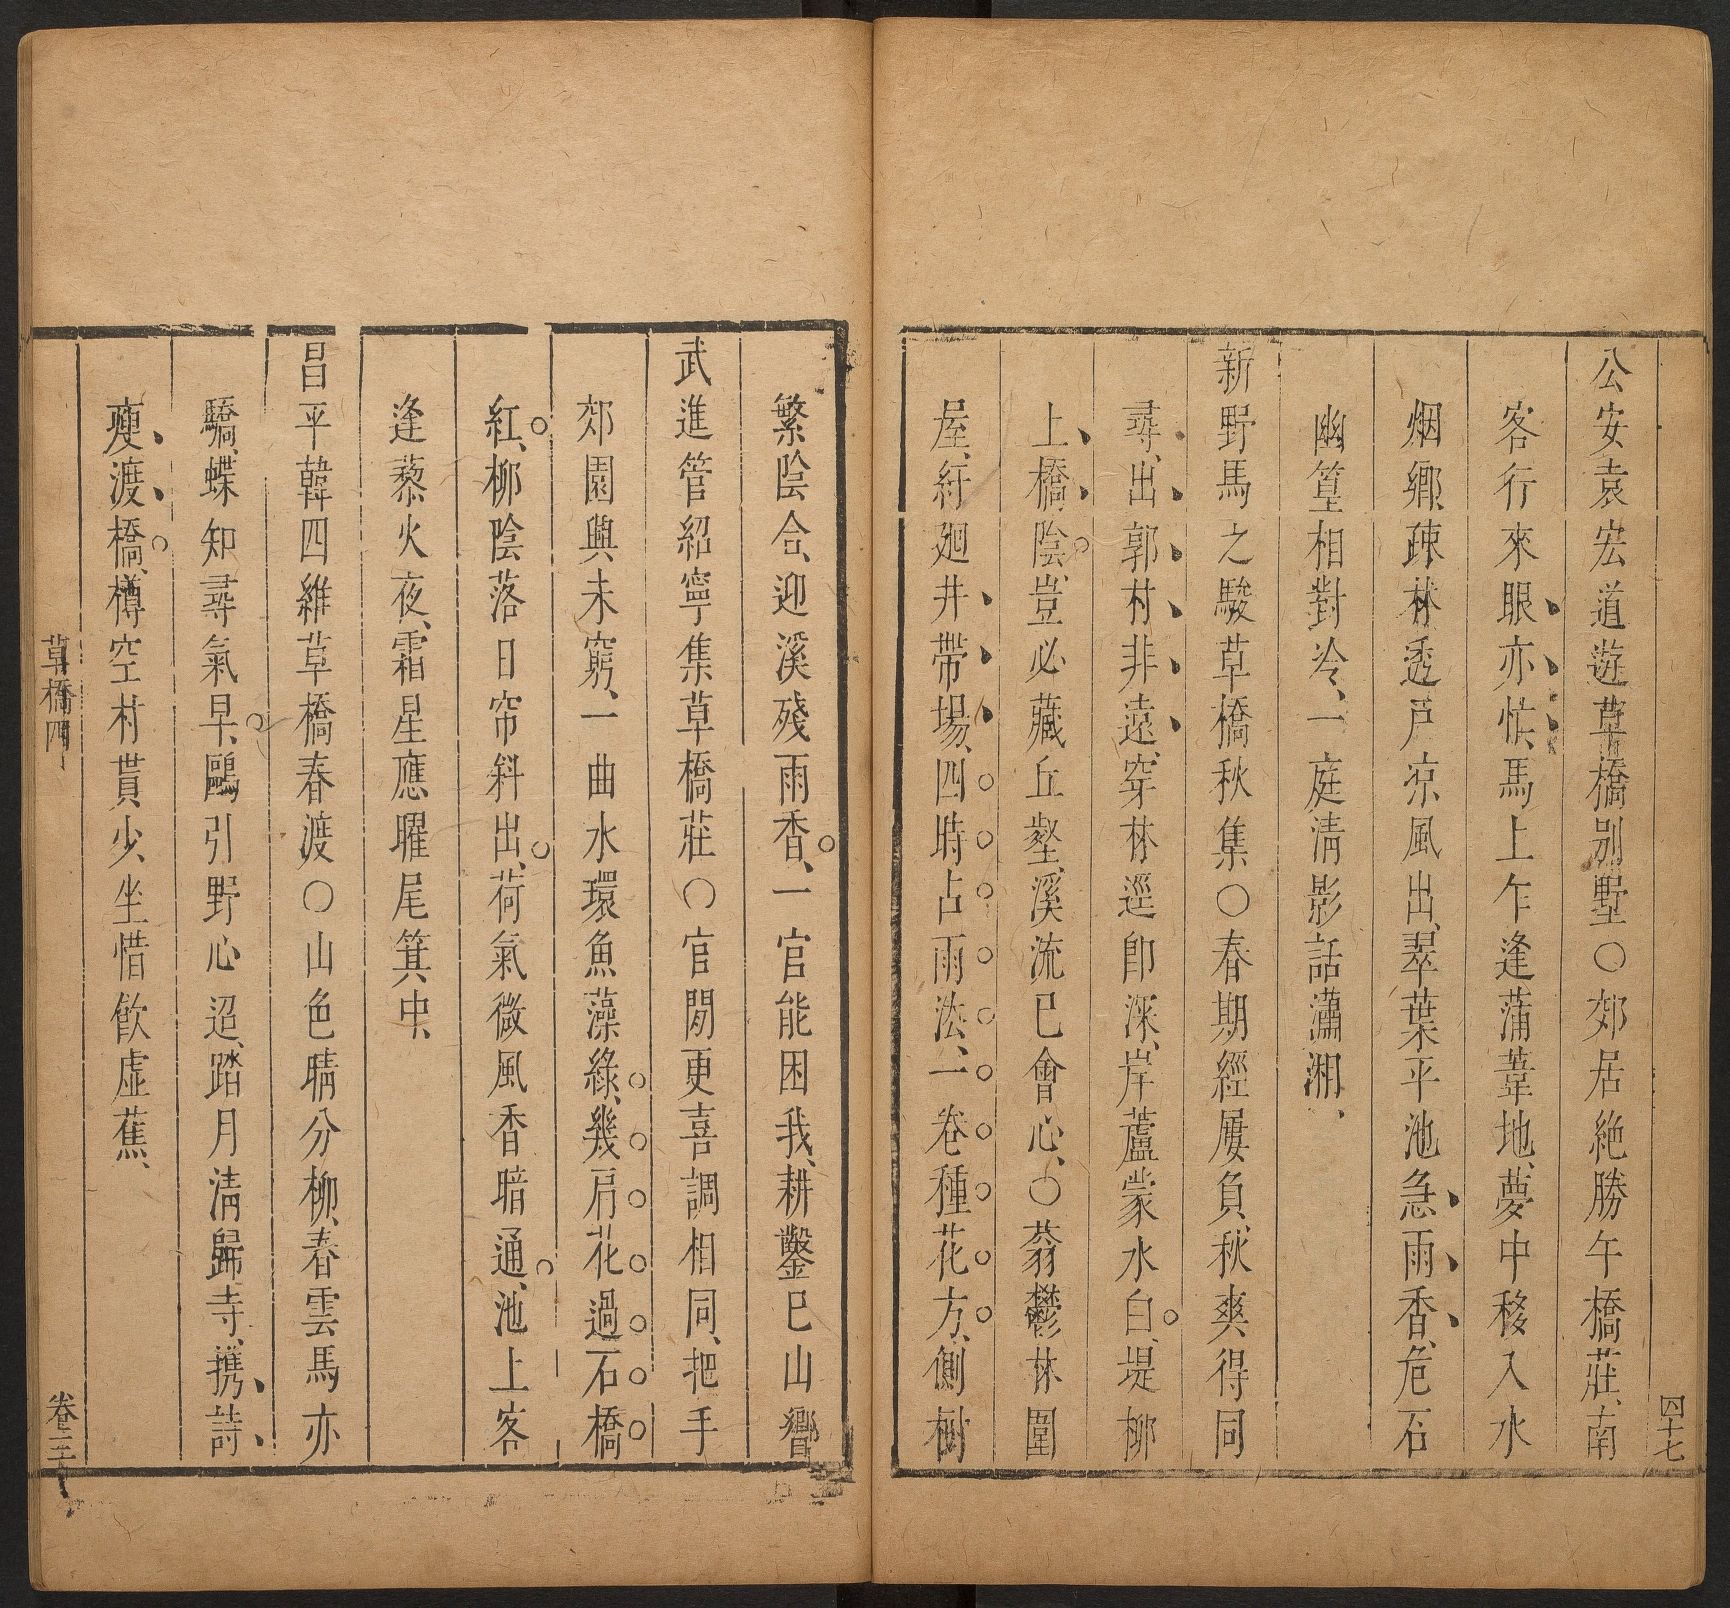 四十七
公安袁宏道遊草橋別墅○郊居絶勝午橋莊、南
客行來眼亦忙、馬上乍逢蒲葦地、夢中移入水
烟鄉、疎林透戸凉風出、翠葉平池急雨香、危石
幽篁相對冷、一庭清影話瀟湘、
新野馬之駿草橋秋集○春期經屢負、秋爽得同
尋、出郭村非遠、穿林逕卽深、岸蘆蒙水白、堤柳
上橋陰、豈必藏丘壑、溪流巳會心、○蓊鬱林圍
屋、紆廻井帶場、四時占雨法、一卷種花方、側樹
繁陰合、迎溪殘雨香、一官能困我、耕鑿巳山響
武進管紹寧集草橋莊○官閒更喜調相同、把手
郊園興未窮、一曲水環魚藻綠、幾肩花過石橋
紅、柳陰落日帘斜出、荷氣微風香暗通、池上客
逢藜火夜、霜星應曜尾箕中、
昌平韓四維草橋春渡○山色晴分柳、春雲馬亦
驕、蝶知尋氣早、鷗引野心迢、踏月清歸寺、携詩
瘦渡橋、樽空村貰少、坐惜飲虛蕉、
草橋四
卷三